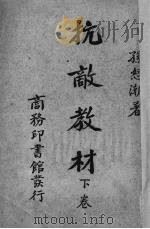 孫慰潮著
抗敵教材
下卷
商務印書館發行